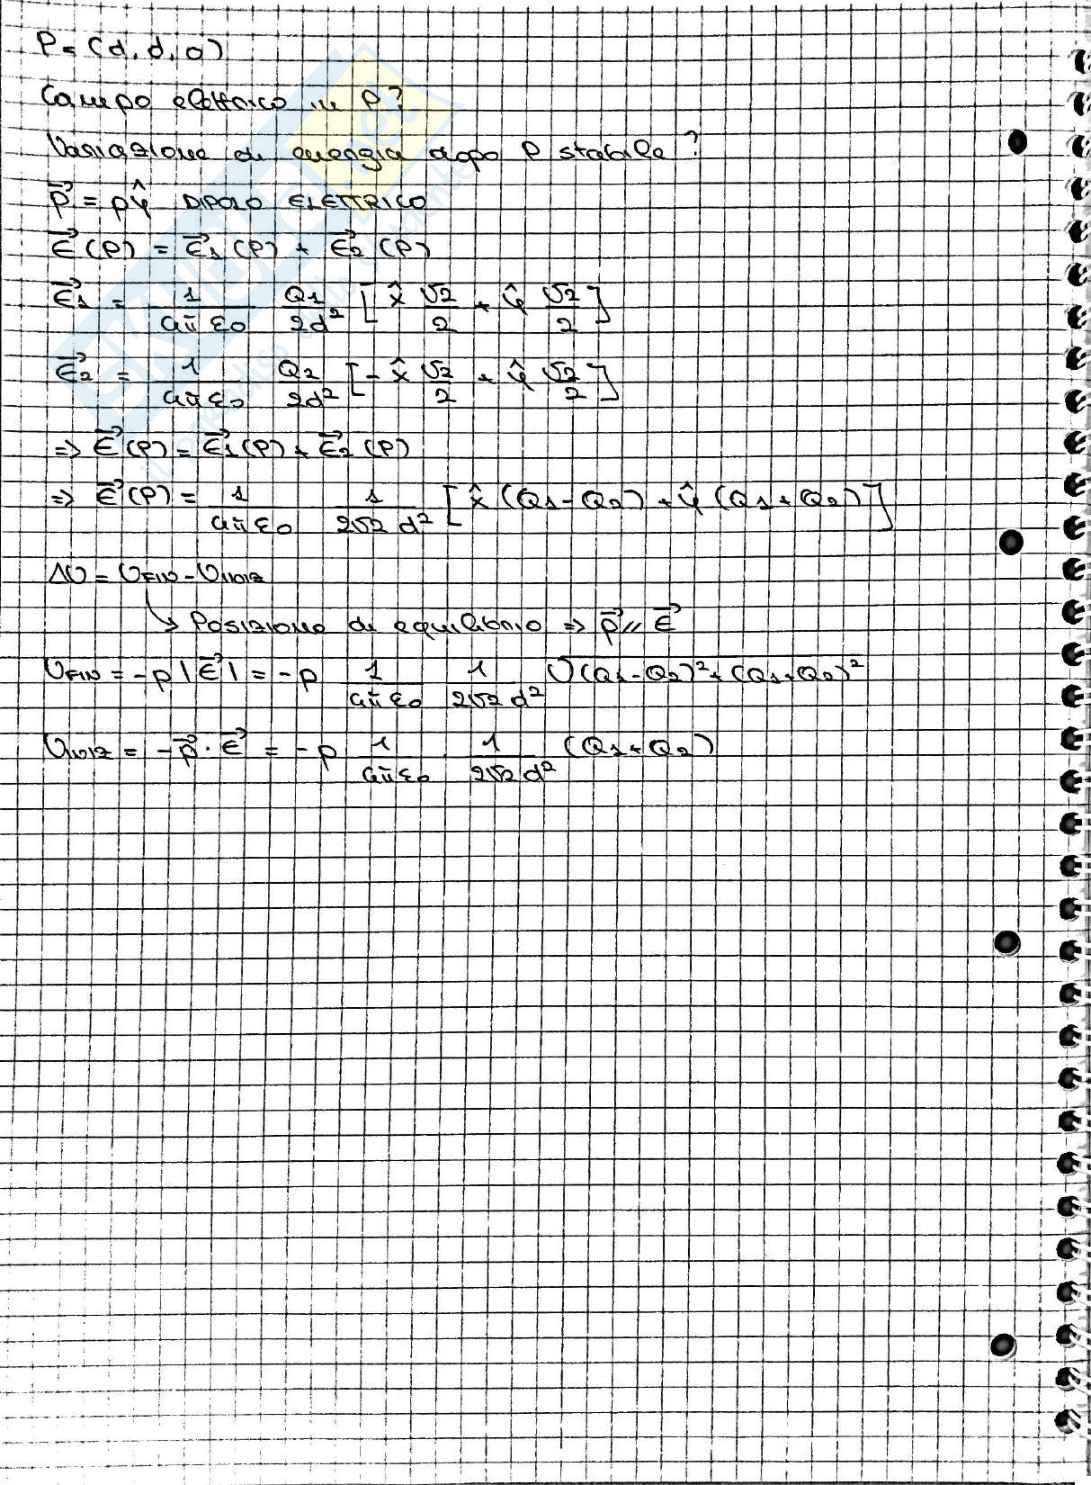 P = (d, d, 0)
Campo elettrico in P?
Variazione di energia dopo P stabile?
p⃗ = pŷ DIPOLO ELETTRICO
E⃗(P) = E⃗₁(P) + E⃗₂(P)
E⃗₁ = 1/(4πε₀) Q₁/(2d²) [x̂ √2/2 + ŷ √2/2]
E⃗₂ = 1/(4πε₀) Q₂/(2d²) [-x̂ √2/2 + ŷ √2/2]
=> E⃗(P) = E⃗₁(P) + E⃗₂(P)
=> E⃗(P) = 1/(4πε₀) 1/(2√2 d²) [x̂ (Q₁-Q₂) + ŷ (Q₁+Q₂)]
ΔU = U_FIN - U_INIZ
↳ Posizione di equilibrio => p⃗ // E⃗
U_FIN = -p|E⃗| = -p 1/(4πε₀) 1/(2√2 d²) √((Q₁-Q₂)² + (Q₁+Q₂)²)
U_INIZ = -p⃗ · E⃗ = -p 1/(4πε₀) 1/(2√2 d²) (Q₁+Q₂)